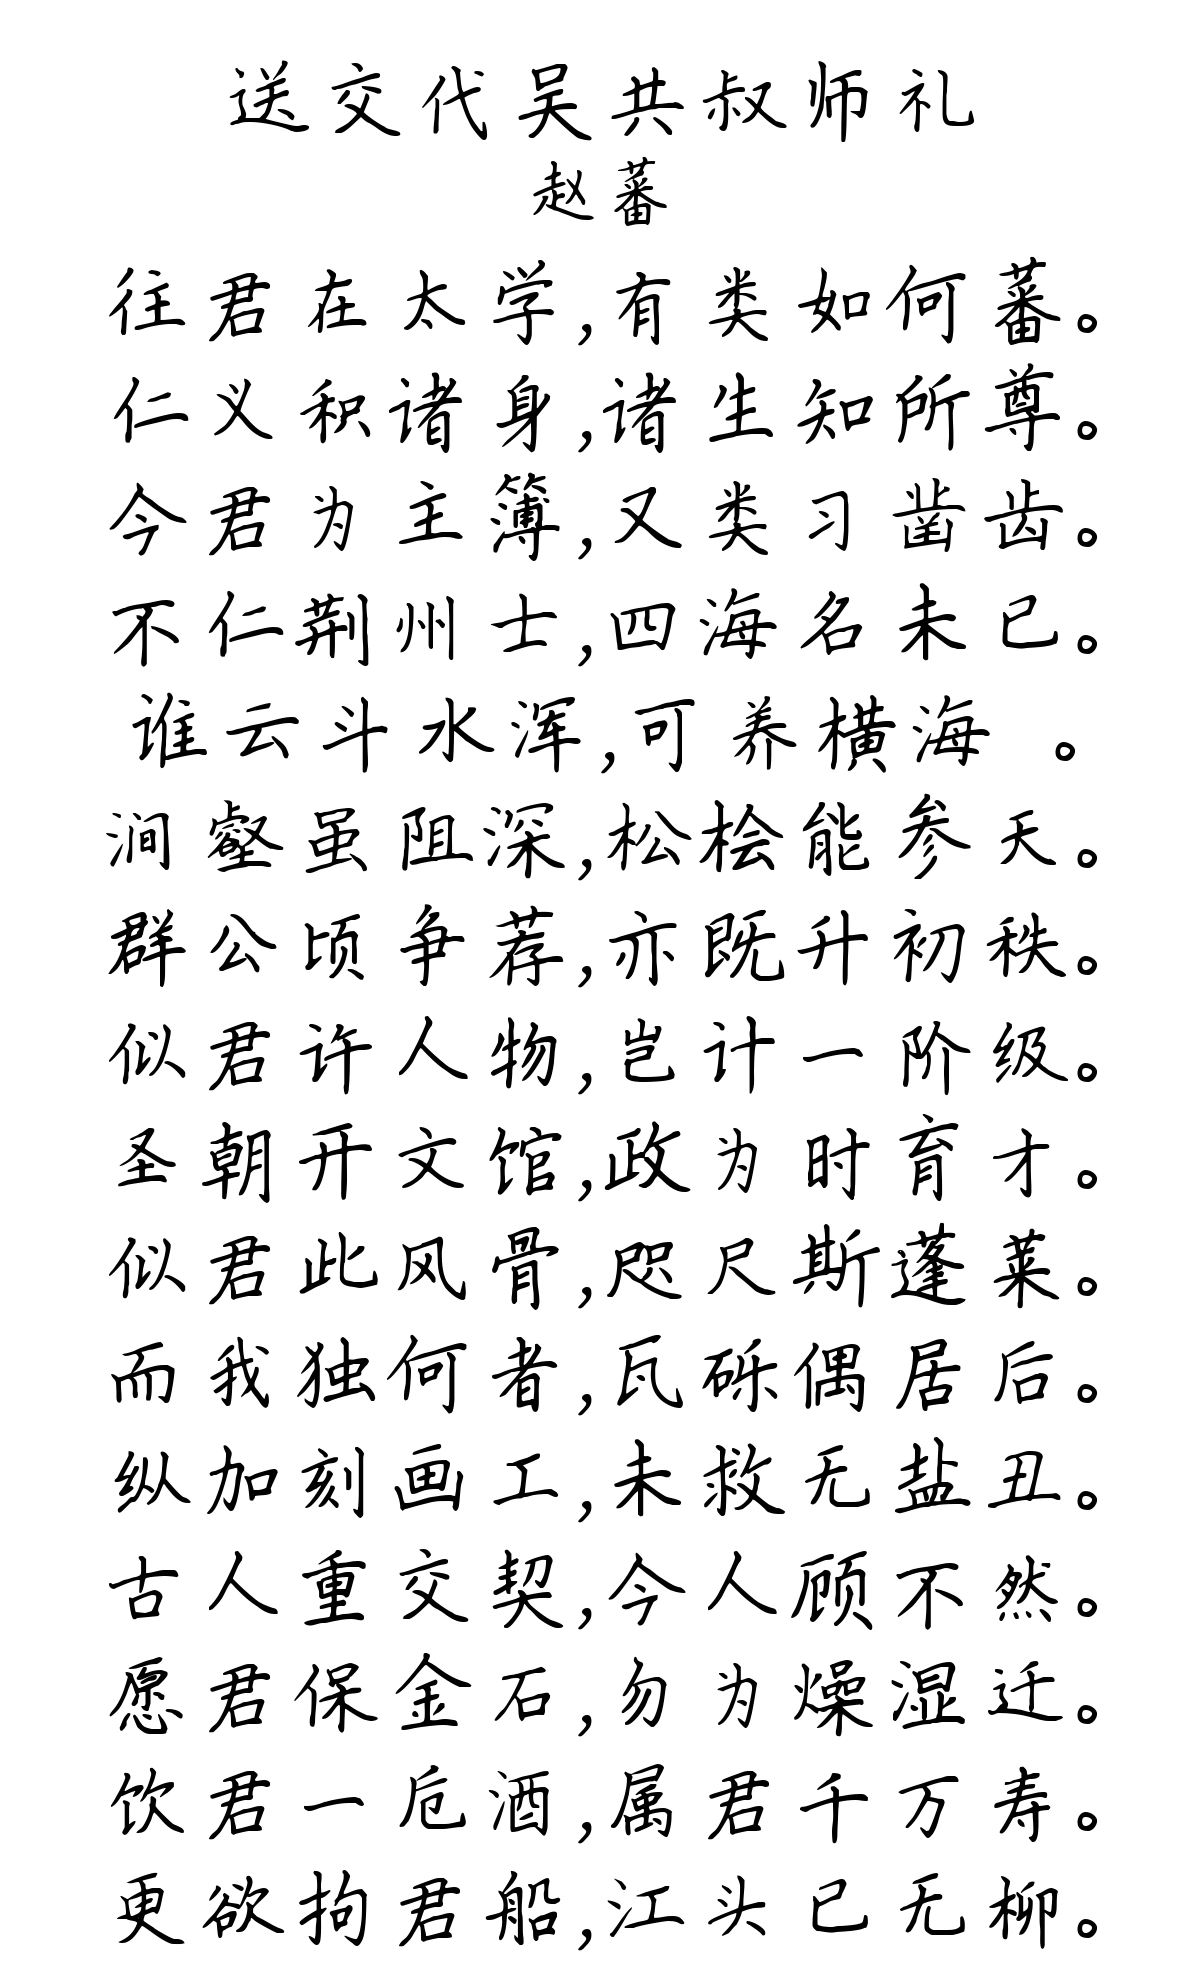 送交代吴共叔师礼
赵蕃
往君在太学,有类如何蕃。
仁义积诸身,诸生知所尊。
今君为主簿,又类习凿齿。
不仁荆州士,四海名未已。
谁云斗水浑,可养横海 。
涧壑虽阻深,松桧能参天。
群公顷争荐,亦既升初秩。
似君许人物,岂计一阶级。
圣朝开文馆,政为时育才。
似君此风骨,咫尺斯蓬莱。
而我独何者,瓦砾偶居后。
纵加刻画工,未救无盐丑。
古人重交契,今人顾不然。
愿君保金石,勿为燥湿迁。
饮君一卮酒,属君千万寿。
更欲拘君船,江头已无柳。